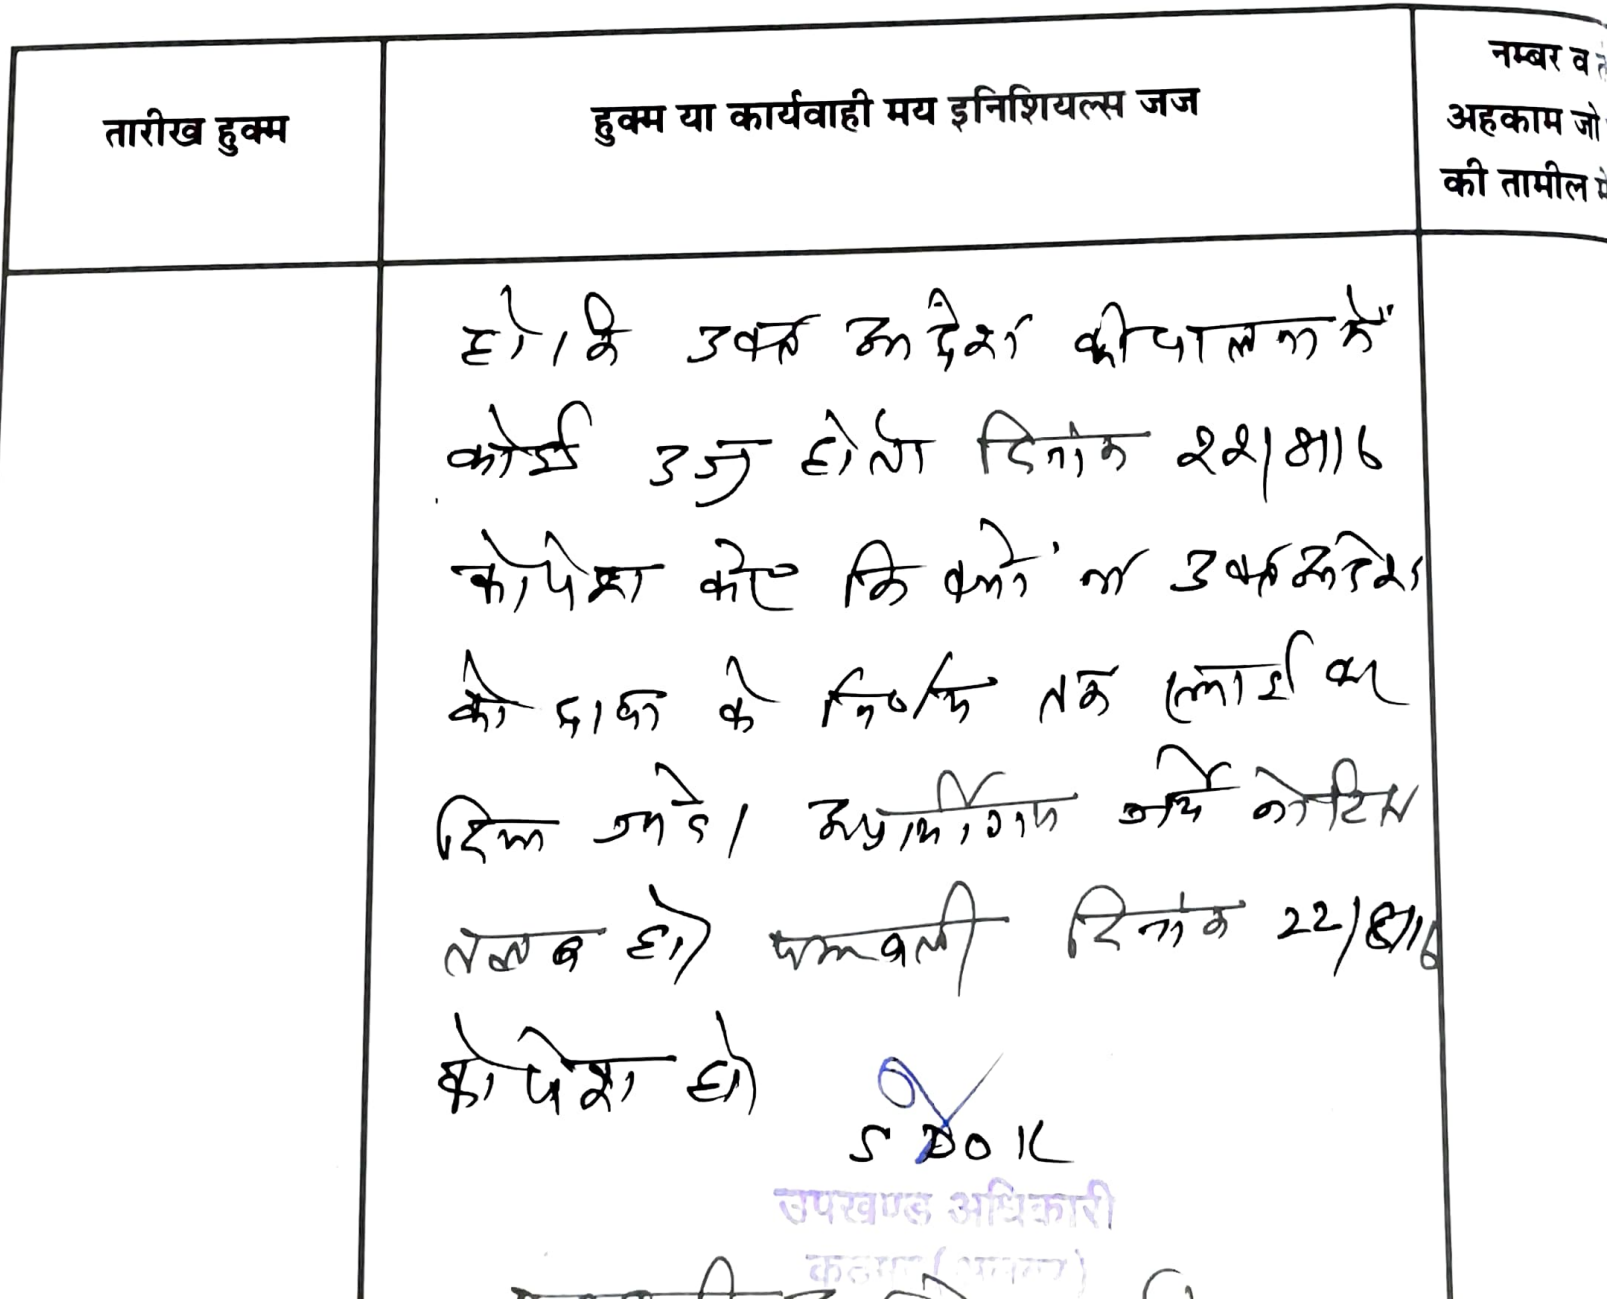 तारीख हुक्म
हुक्म या कार्यवाही मय इनिशियल्स जज
नम्बर व
अहकाम जो
की तामील में
हो। कि उक्त आदेश की पालना में
कोई उज्र हो तो दिनांक 22/8/16
को पेश करें कि क्यों ना उक्त आदेश
को दावा के निर्णय तक स्थाई कर
दिया जावे। अप्रार्थीगण जर्ये नोटिस
तलब हो। पत्रावली दिनांक 22/8/16
को पेश हो।
SDO K
उपखण्ड अधिकारी